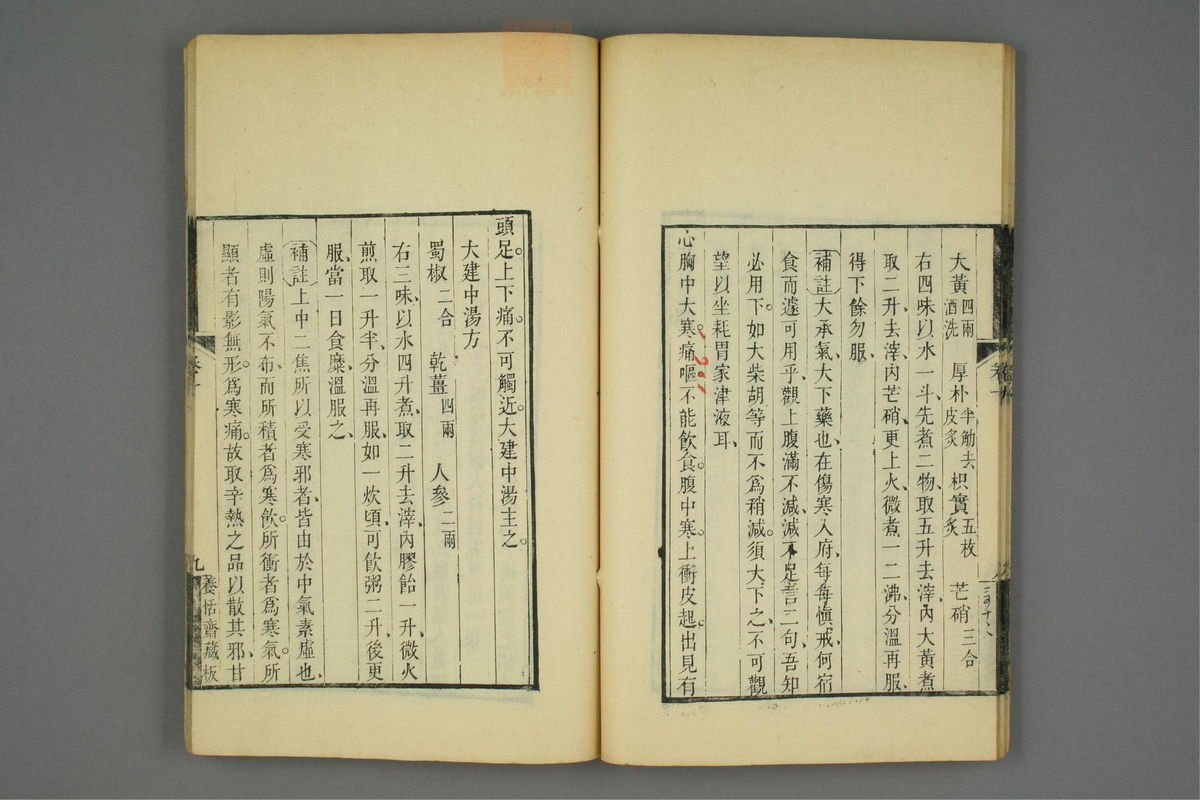 大黃四兩酒洗 厚朴半觔去皮炙 枳實五枚炙 芒硝三合
右四味以水一斗、先煮二物、取五升去滓、內大黃煮
取二升、去滓、內芒硝、更上火、微煮一二沸、分溫再服、
得下餘勿服、
補註大承氣、大下藥也、在傷寒入府、每每愼戒、何宿
食而遽可用乎、觀上腹滿不減、減不足言二句、吾知
必用下。如大柴胡等而不爲稍減、須大下之、不可觀
望以坐耗胃家津液耳、
心胸中大寒痛、嘔不能飲食。腹中寒。上衝皮起。出見有
頭足。上下痛。不可觸近。大建中湯主之。
大建中湯方
蜀椒二合 乾薑四兩 人參二兩
右三味、以水四升煮、取二升去滓、內膠飴一升、微火
煎取一升半、分溫再服、如一炊頃、可飲粥二升、後更
服、當一日食糜、溫服之、
補註上中二焦所以受寒邪者、皆由於中氣素虛也、
虛則陽氣不布、而所積者爲寒飲。所衝者爲寒氣。所
顯者有影無形。爲寒痛。故取辛熱之品以散其邪、甘
卷十
九
養恬齋藏板